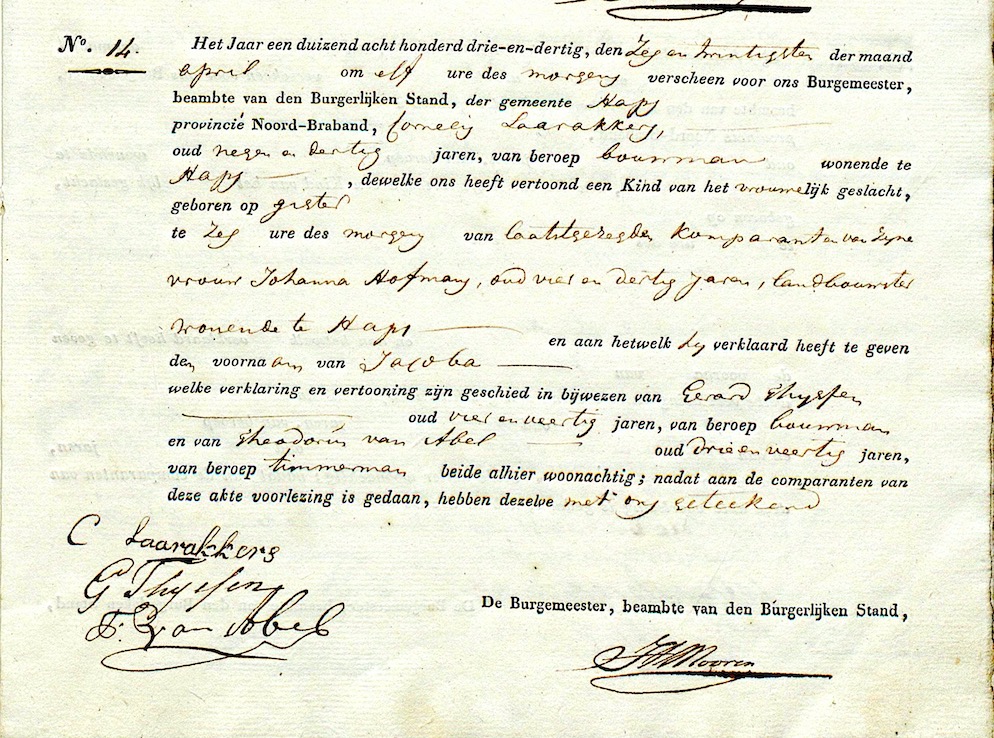 N°. 14.
Het Jaar een duizend acht honderd drie-en-dertig, den Zes en twintigsten der maand
april om elf ure des morgens verscheen voor ons Burgemeester,
beambte van den Burgerlijken Stand, der gemeente Haps
provincié Noord-Braband, Cornelis Laarakkers,
oud negen en dertig jaren, van beroep bouwman wonende te
Haps, dewelke ons heeft vertoond een Kind van het vrouwelijk geslacht,
geboren op gister
te Zes ure des morgens van laatstgezegden Komparant en van Zyne
vrouw Johanna Hofmans, oud vier en dertig jaren, landbouwster
wonende te Haps en aan hetwelk hy verklaard heeft te geven
den voornaam van Jacoba
welke verklaring en vertooning zijn geschied in bijwezen van Gerard Thyssen
oud vier en veertig jaren, van beroep bouwman
en van Theodorus van Abel oud drie en veertig jaren,
van beroep timmerman beide alhier woonachtig; nadat aan de comparanten van
deze akte voorlezing is gedaan, hebben dezelve met ons geteekend
C Laarakkers
G Thyssen
T. van Abel
De Burgemeester, beambte van den Burgerlijken Stand,